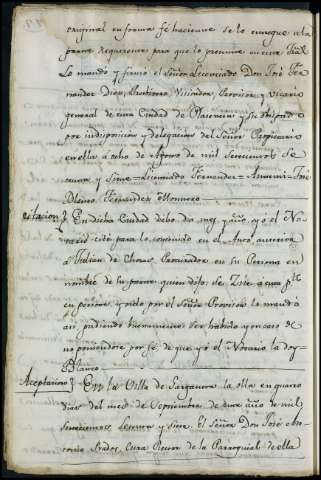 original en forma fé haciente se lo entregue a la
parte Requirente para que lo presente en este Trãl
Lo mandó y firmó el Señor Licenciado Don José Fer
nandez Diaz, Provisor y Vicario
general de esta Ciudad de Plasencia y su Obispado
por indisposicion y delegacion del Señor
en ella á ocho de Agosto de mil Setecientos Se
senta y siete = Licenciado Fernandez = = José
Fernandez Montero
citacion } En dicha Ciudad dicho dia mes y año, yo el No
tario cité para lo contenido en el Auto anterior
á Julian de Procurador en su Persona en
nombre de su parte, quien dijo: se
en persona, y visto por el Señor Provisor lo mandó
asi, pudiendo buenamente ser habido y en caso de
no poniendose por fé, de que yo el Notario la doy
Blanco
Aceptacion } En la Villa de Sarganta la olla en quatro
dias del mes de Septiembre de este año de mil
setecientos sesenta y siete. El Señor Don José An
tonio Prados, Cura Rector de la Parroquial de ella